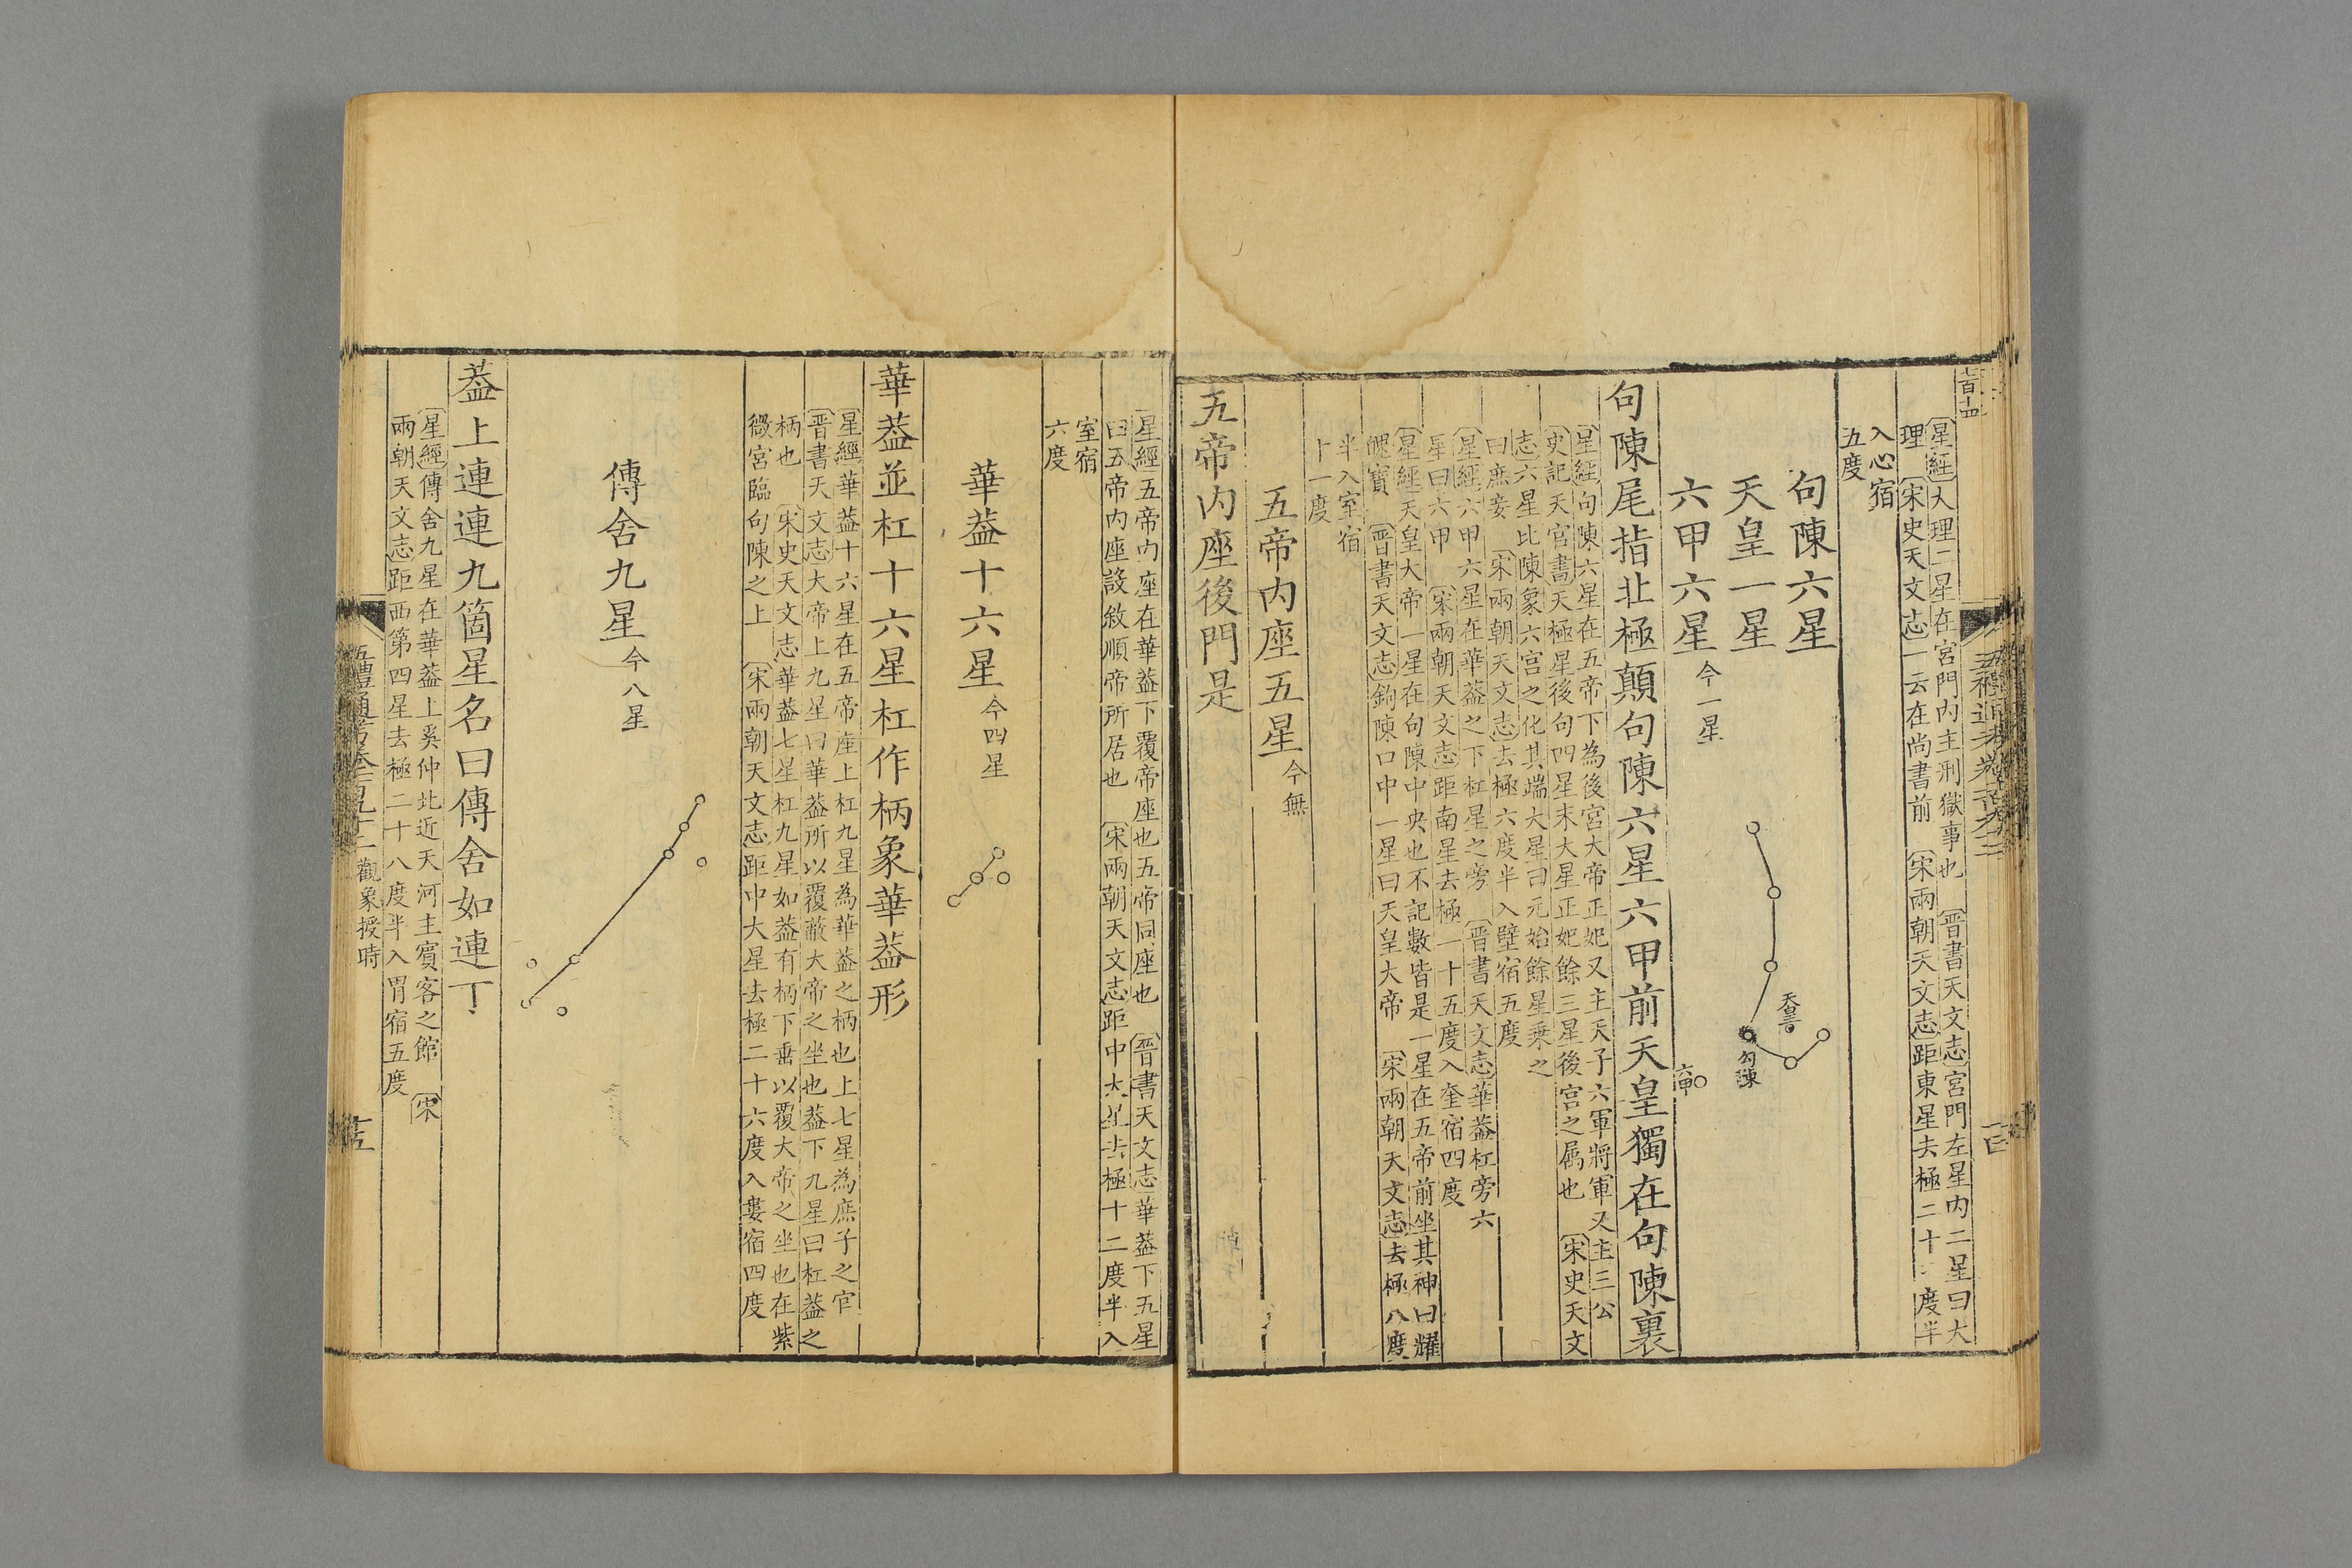 星經大理二星在宮門內主刑獄事也 晉書天文志宮門左星內二星曰大
理 宋史天文志一云在尚書前 宋兩朝天文志距東星去極二十 度半
入心宿
五度
句陳六星
天皇一星
六甲六星今一星
天皇
句陳
六甲
句陳尾指北極顛句陳六星六甲前天皇獨在句陳裏
星經句陳六星在五帝下為後宮大帝正妃又主天子六軍將軍又主三公
史記天官書天極星後句四星末大星正妃餘三星後宮之屬也 宋史天文
志六星比陳象六宮之化其端大星曰元始餘星乘之
曰庶妾 宋兩朝天文志去極六度半入壁宿五度
星經六甲六星在華葢之下杠星之旁 晉書天文志華葢杠旁六
星曰六甲 宋兩朝天文志距南星去極一十五度入奎宿四度
星經天皇大帝一星在句陳中央也不記數皆是一星在五帝前坐其神曰耀
魄寶 晉書天文志鉤陳口中一星曰天皇大帝 宋兩朝天文志去極八度
半入室宿
十一度
五帝內座五星今無
五帝內座後門是
星經五帝內座在華葢下覆帝座也五帝同座也 晉書天文志華葢下五星
曰五帝內座設敘順帝所居也 宋兩朝天文志距中大星去極十二度半入
室宿
六度
華葢十六星今四星
華葢並杠十六星杠作柄象華葢形
星經華葢十六星在五帝座上杠九星為華葢之柄也上七星為庶子之官
晉書天文志大帝上九星曰華葢所以覆蔽大帝之坐也葢下九星曰杠葢之
柄也 宋史天文志華葢七星杠九星如葢有柄下垂以覆大帝之坐也在紫
微宮臨句陳之上 宋兩朝天文志距中大星去極二十六度入婁宿四度
傳舍九星今八星
葢上連連九箇星名曰傳舍如連丁
星經傳舍九星在華葢上奚仲北近天河主賓客之館 宋
兩朝天文志距西第四星去極二十八度半入胃宿五度
觀象授時